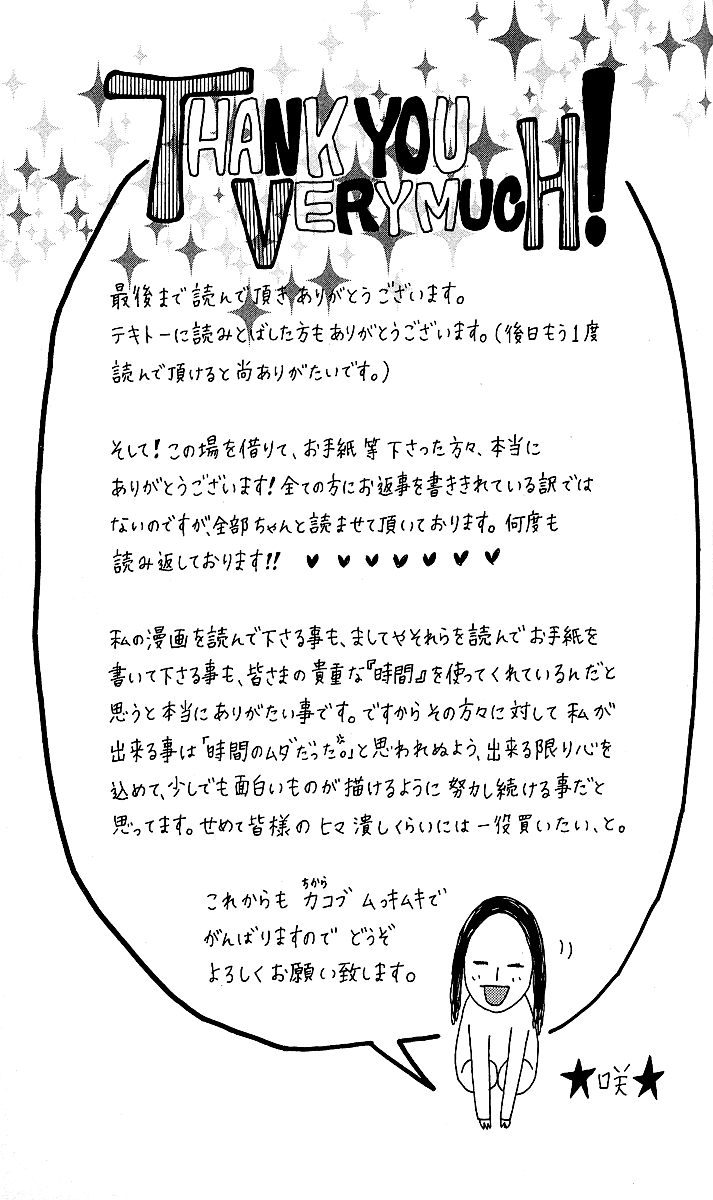 THANK YOU
VERY MUCH!
最後まで読んで頂きありがとうございます。
テキトーに読みとばした方もありがとうございます。(後日もう1度
読んで頂けると尚ありがたいです。)
そして!この場を借りて、お手紙等下さった方々、本当に
ありがとうございます!全ての方にお返事を書ききれている訳では
ないのですが、全部ちゃんと読ませて頂いております。何度も
読み返しております!! ♥ ♥ ♥ ♥ ♥ ♥ ♥
私の漫画を読んで下さる事も、ましてやそれらを読んでお手紙を
書いて下さる事も、皆さまの貴重な『時間』を使ってくれているんだと
思うと本当にありがたい事です。ですからその方々に対して私が
出来る事は「時間のムダだった。」と思われぬよう、出来る限り心を
込めて、少しでも面白いものが描けるように努力し続ける事だと
思ってます。せめて皆様のヒマ潰しくらいには一役買いたい、と。
ちから
これからも力コブムッキムキで
がんばりますのでどうぞ
よろしくお願い致します。
★咲★